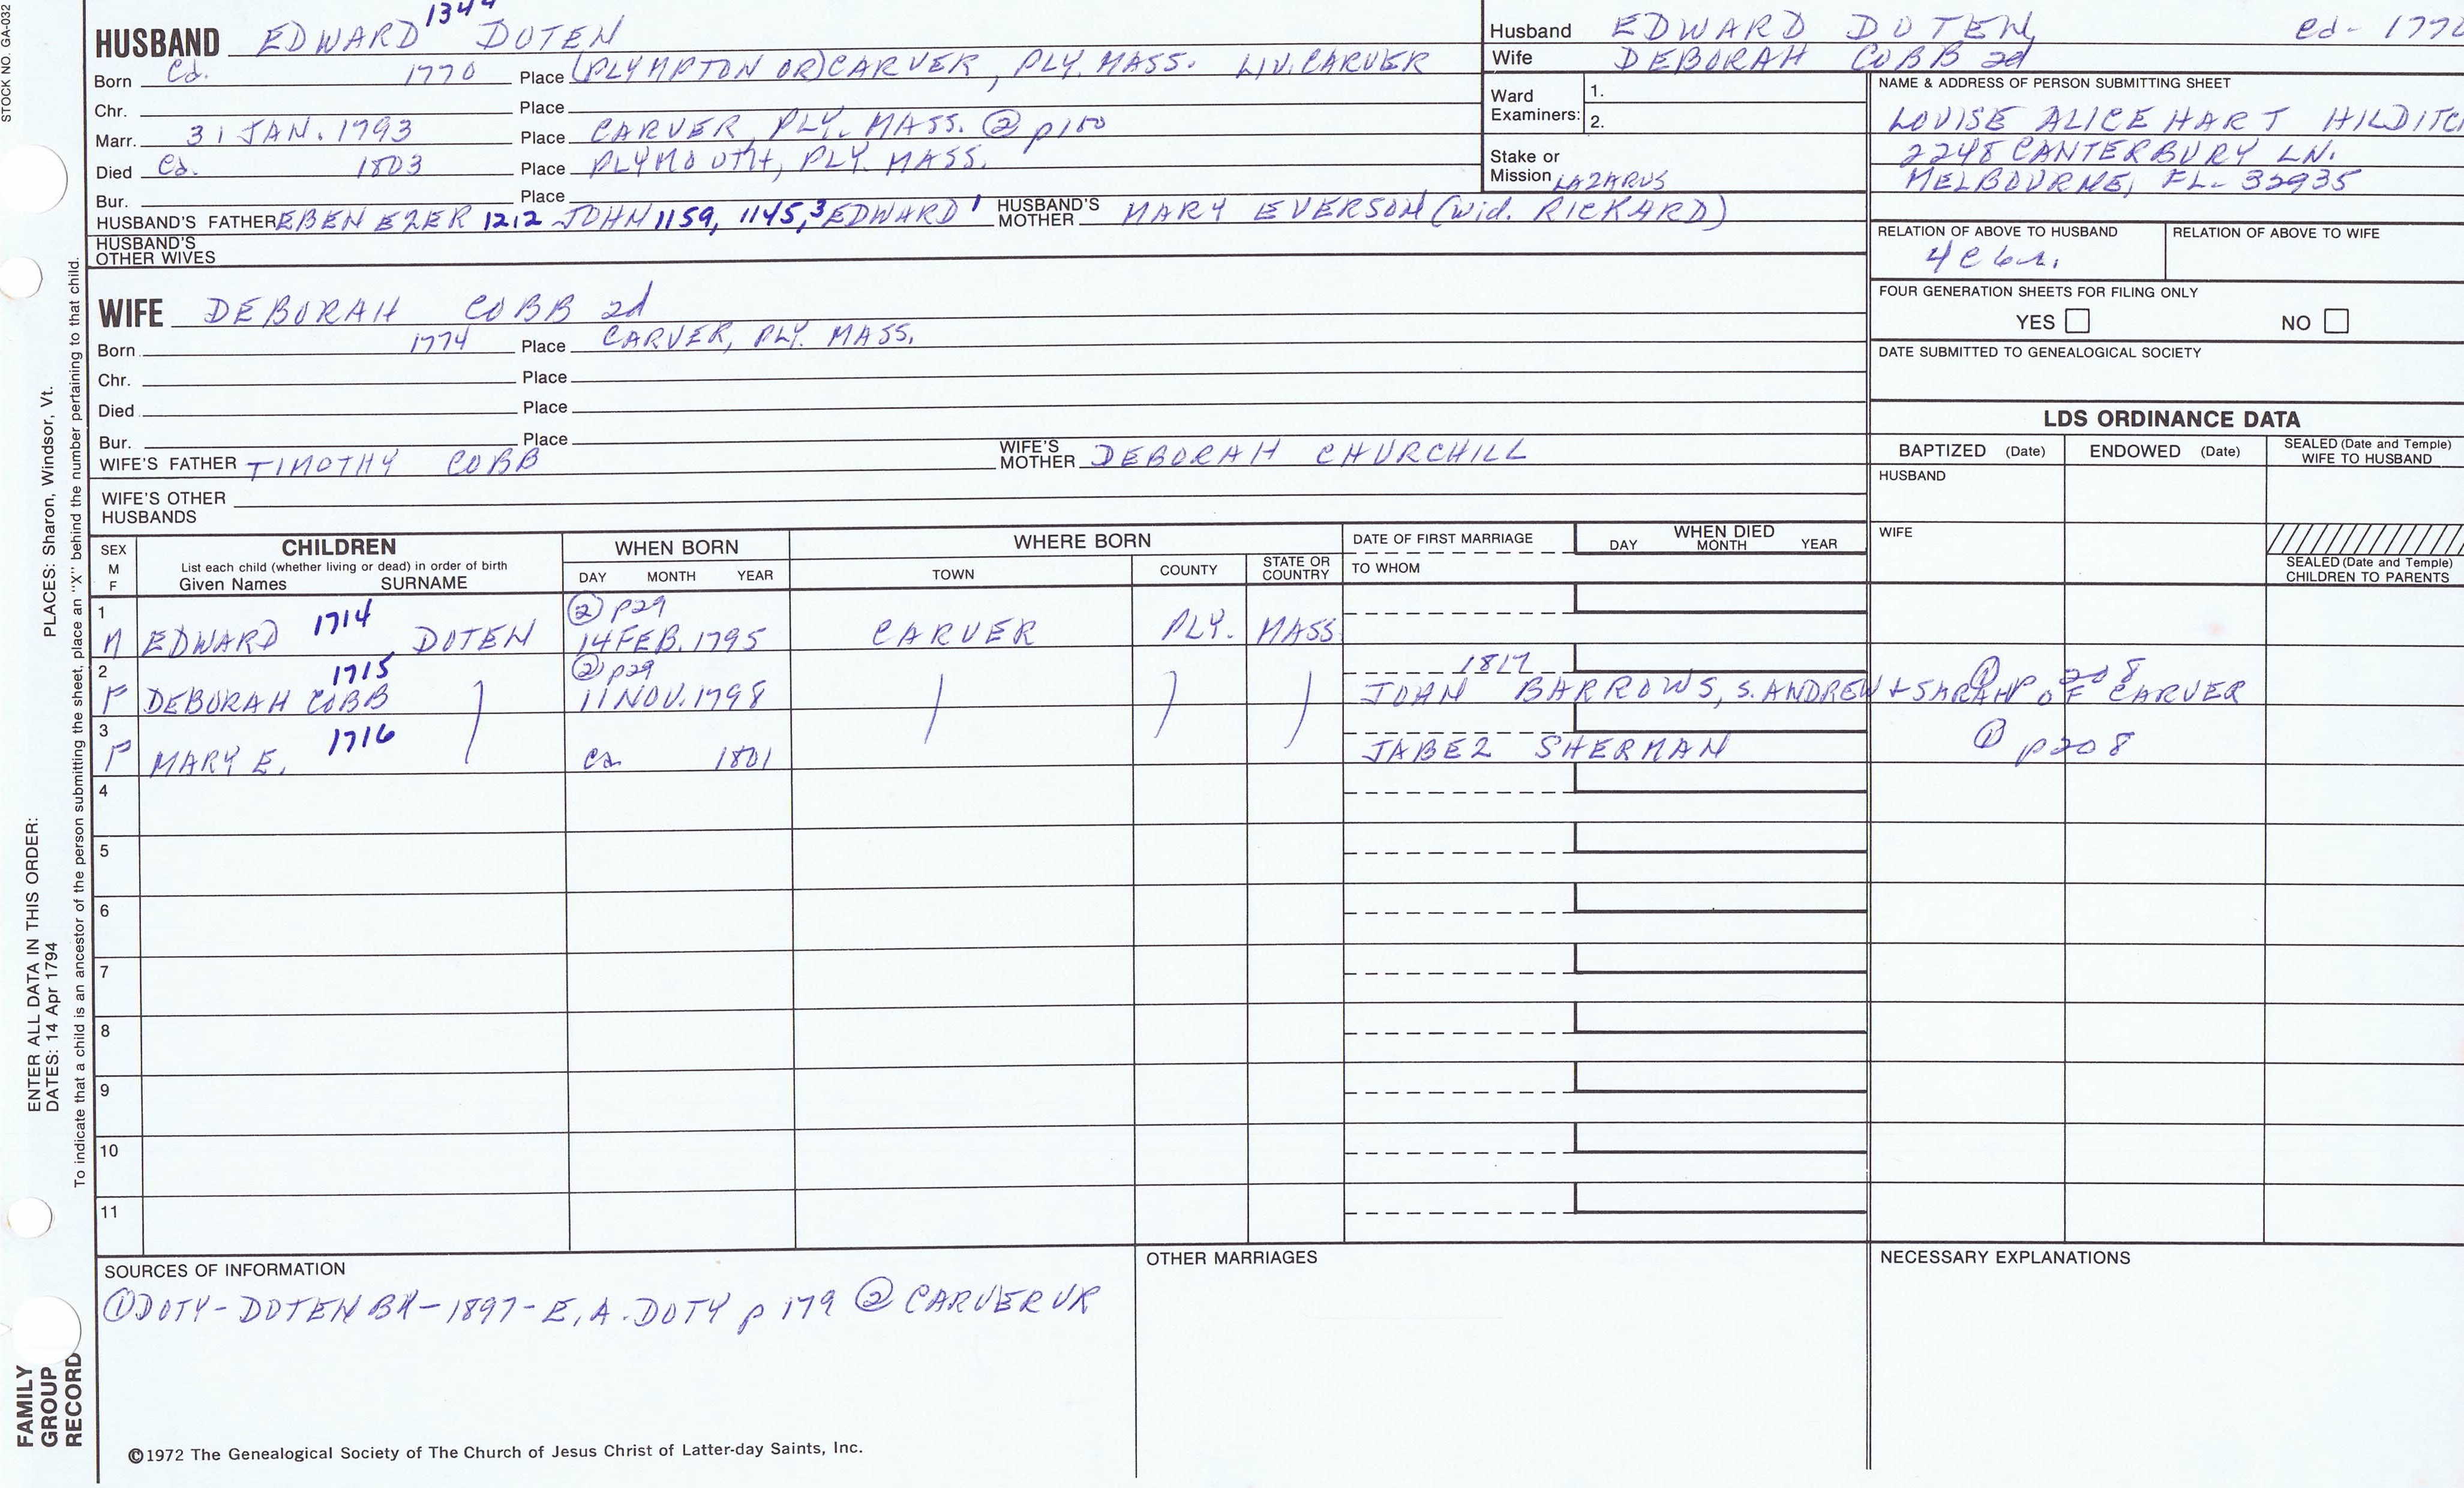 STOCK NO. GA-032
HUSBAND EDWARD 1344 DOTEN
Born Ca. 1770 Place (PLYMPTON OR) CARVER, PLY. MASS. LIV. CARVER
Chr. Place
Marr. 31 JAN. 1793 Place CARVER, PLY. MASS. ② p150
Died Ca. 1803 Place PLYMOUTH, PLY. MASS.
Bur. Place
HUSBAND'S FATHER EBENEZER 1212 JOHN 1159, 1145,³ EDWARD ¹ HUSBAND'S MOTHER MARY EVERSON (wid. RICKARD)
HUSBAND'S OTHER WIVES
Husband EDWARD DOTEN ca- 1770
Wife DEBORAH COBB 2d
Ward Examiners: 1.
2.
Stake or Mission LAZARUS
NAME & ADDRESS OF PERSON SUBMITTING SHEET
LOUISE ALICE HART HILDITC
2248 CANTERBURY LN.
MELBOURNE, FL- 32935
RELATION OF ABOVE TO HUSBAND RELATION OF ABOVE TO WIFE
4c6r.
FOUR GENERATION SHEETS FOR FILING ONLY
YES NO
DATE SUBMITTED TO GENEALOGICAL SOCIETY
WIFE DEBORAH COBB 2d
Born 1774 Place CARVER, PLY. MASS.
Chr. Place
Died Place
Bur. Place
WIFE'S FATHER TIMOTHY COBB WIFE'S MOTHER DEBORAH CHURCHILL
WIFE'S OTHER HUSBANDS
LDS ORDINANCE DATA
BAPTIZED (Date) ENDOWED (Date) SEALED (Date and Temple) WIFE TO HUSBAND
HUSBAND
WIFE
SEALED (Date and Temple) CHILDREN TO PARENTS
SEX M F
CHILDREN
List each child (whether living or dead) in order of birth
Given Names SURNAME
WHEN BORN
DAY MONTH YEAR
WHERE BORN
TOWN COUNTY STATE OR COUNTRY
DATE OF FIRST MARRIAGE
TO WHOM
WHEN DIED
DAY MONTH YEAR
1 ② p29
M EDWARD 1714 DOTEN 14 FEB. 1795 CARVER PLY. MASS
2 1715 ② p29 1817 ① p 208
F DEBORAH COBB 11 NOV. 1798 JOHN BARROWS, S. ANDREW + SARAH OF CARVER
3 1716
F MARY E. Ca 1801 JABEZ SHERMAN ① p208
4
5
6
7
8
9
10
11
SOURCES OF INFORMATION
① DOTY-DOTEN BK-1897-E.A. DOTY p 179 ② CARVER VR
OTHER MARRIAGES
NECESSARY EXPLANATIONS
©1972 The Genealogical Society of The Church of Jesus Christ of Latter-day Saints, Inc.
FAMILY
GROUP
RECORD
ENTER ALL DATA IN THIS ORDER:
DATES: 14 Apr 1794
PLACES: Sharon, Windsor, Vt.
To indicate that a child is an ancestor of the person submitting the sheet, place an "X" behind the number pertaining to that child.